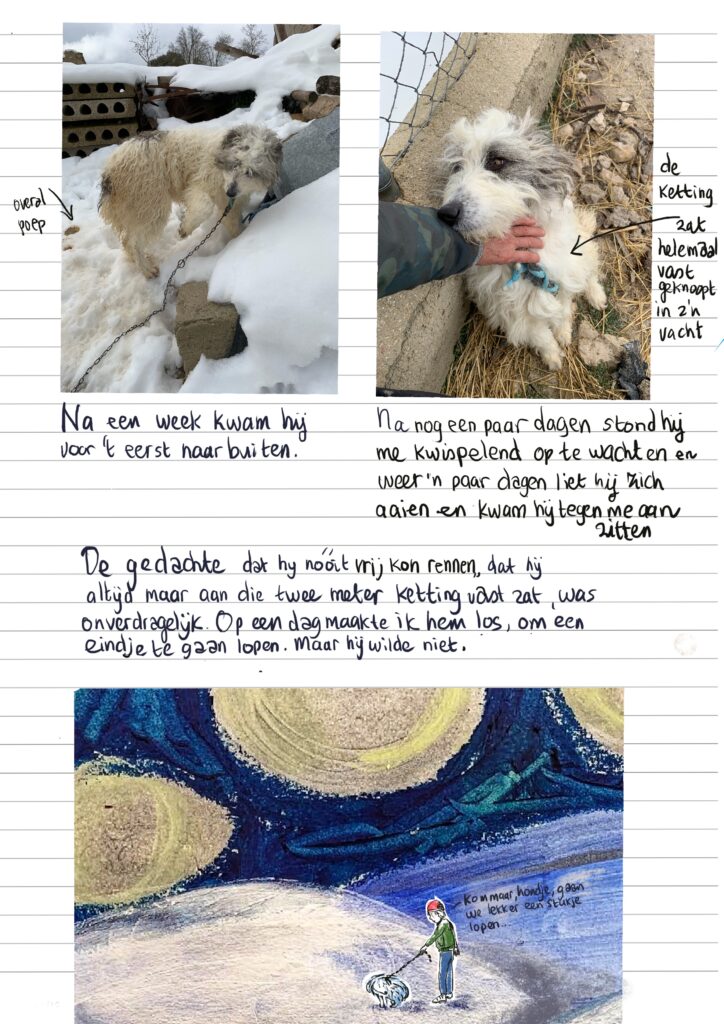 overal
poep
de
ketting
zat
helemaal
vast
geknoopt
in z'n
vacht
Na een week kwam hij
voor 't eerst naar buiten.
Na nog een paar dagen stond hij
me kwispelend op te wachten en
weer 'n paar dagen liet hij zich
aaien en kwam hij tegen me aan
zitten
De gedachte dat hy nóóit vrij kon rennen, dat hij
altijd maar aan die twee meter ketting vast zat, was
onverdragelijk. Op een dag maakte ik hem los, om een
eindje te gaan lopen. Maar hij wilde niet.
Kom maar, hondje, gaan
we lekker een stukje
lopen...